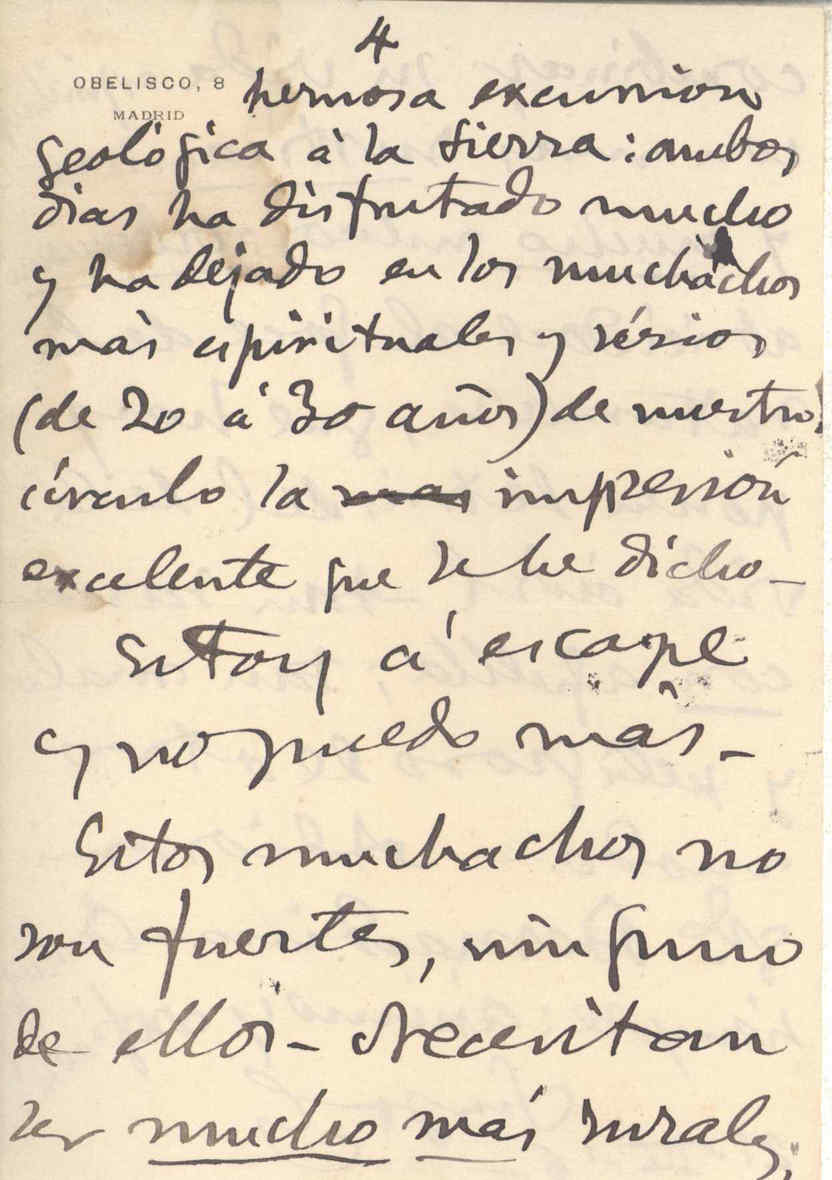 4
OBELISCO, 8
MADRID
hermosa excursion
geológica á la Sierra: ambos
dias ha disfrutado mucho
y ha dejado en los muchachos
más espirituales y sérios
(de 20 á 30 años) de nuestro
círculo la mas impresión
excelente que le he dicho—
Estoy á escape
y no puedo más—
Estos muchachos no
son fuertes, ninguno
de ellos— Necesitan
ser mucho más rurales,